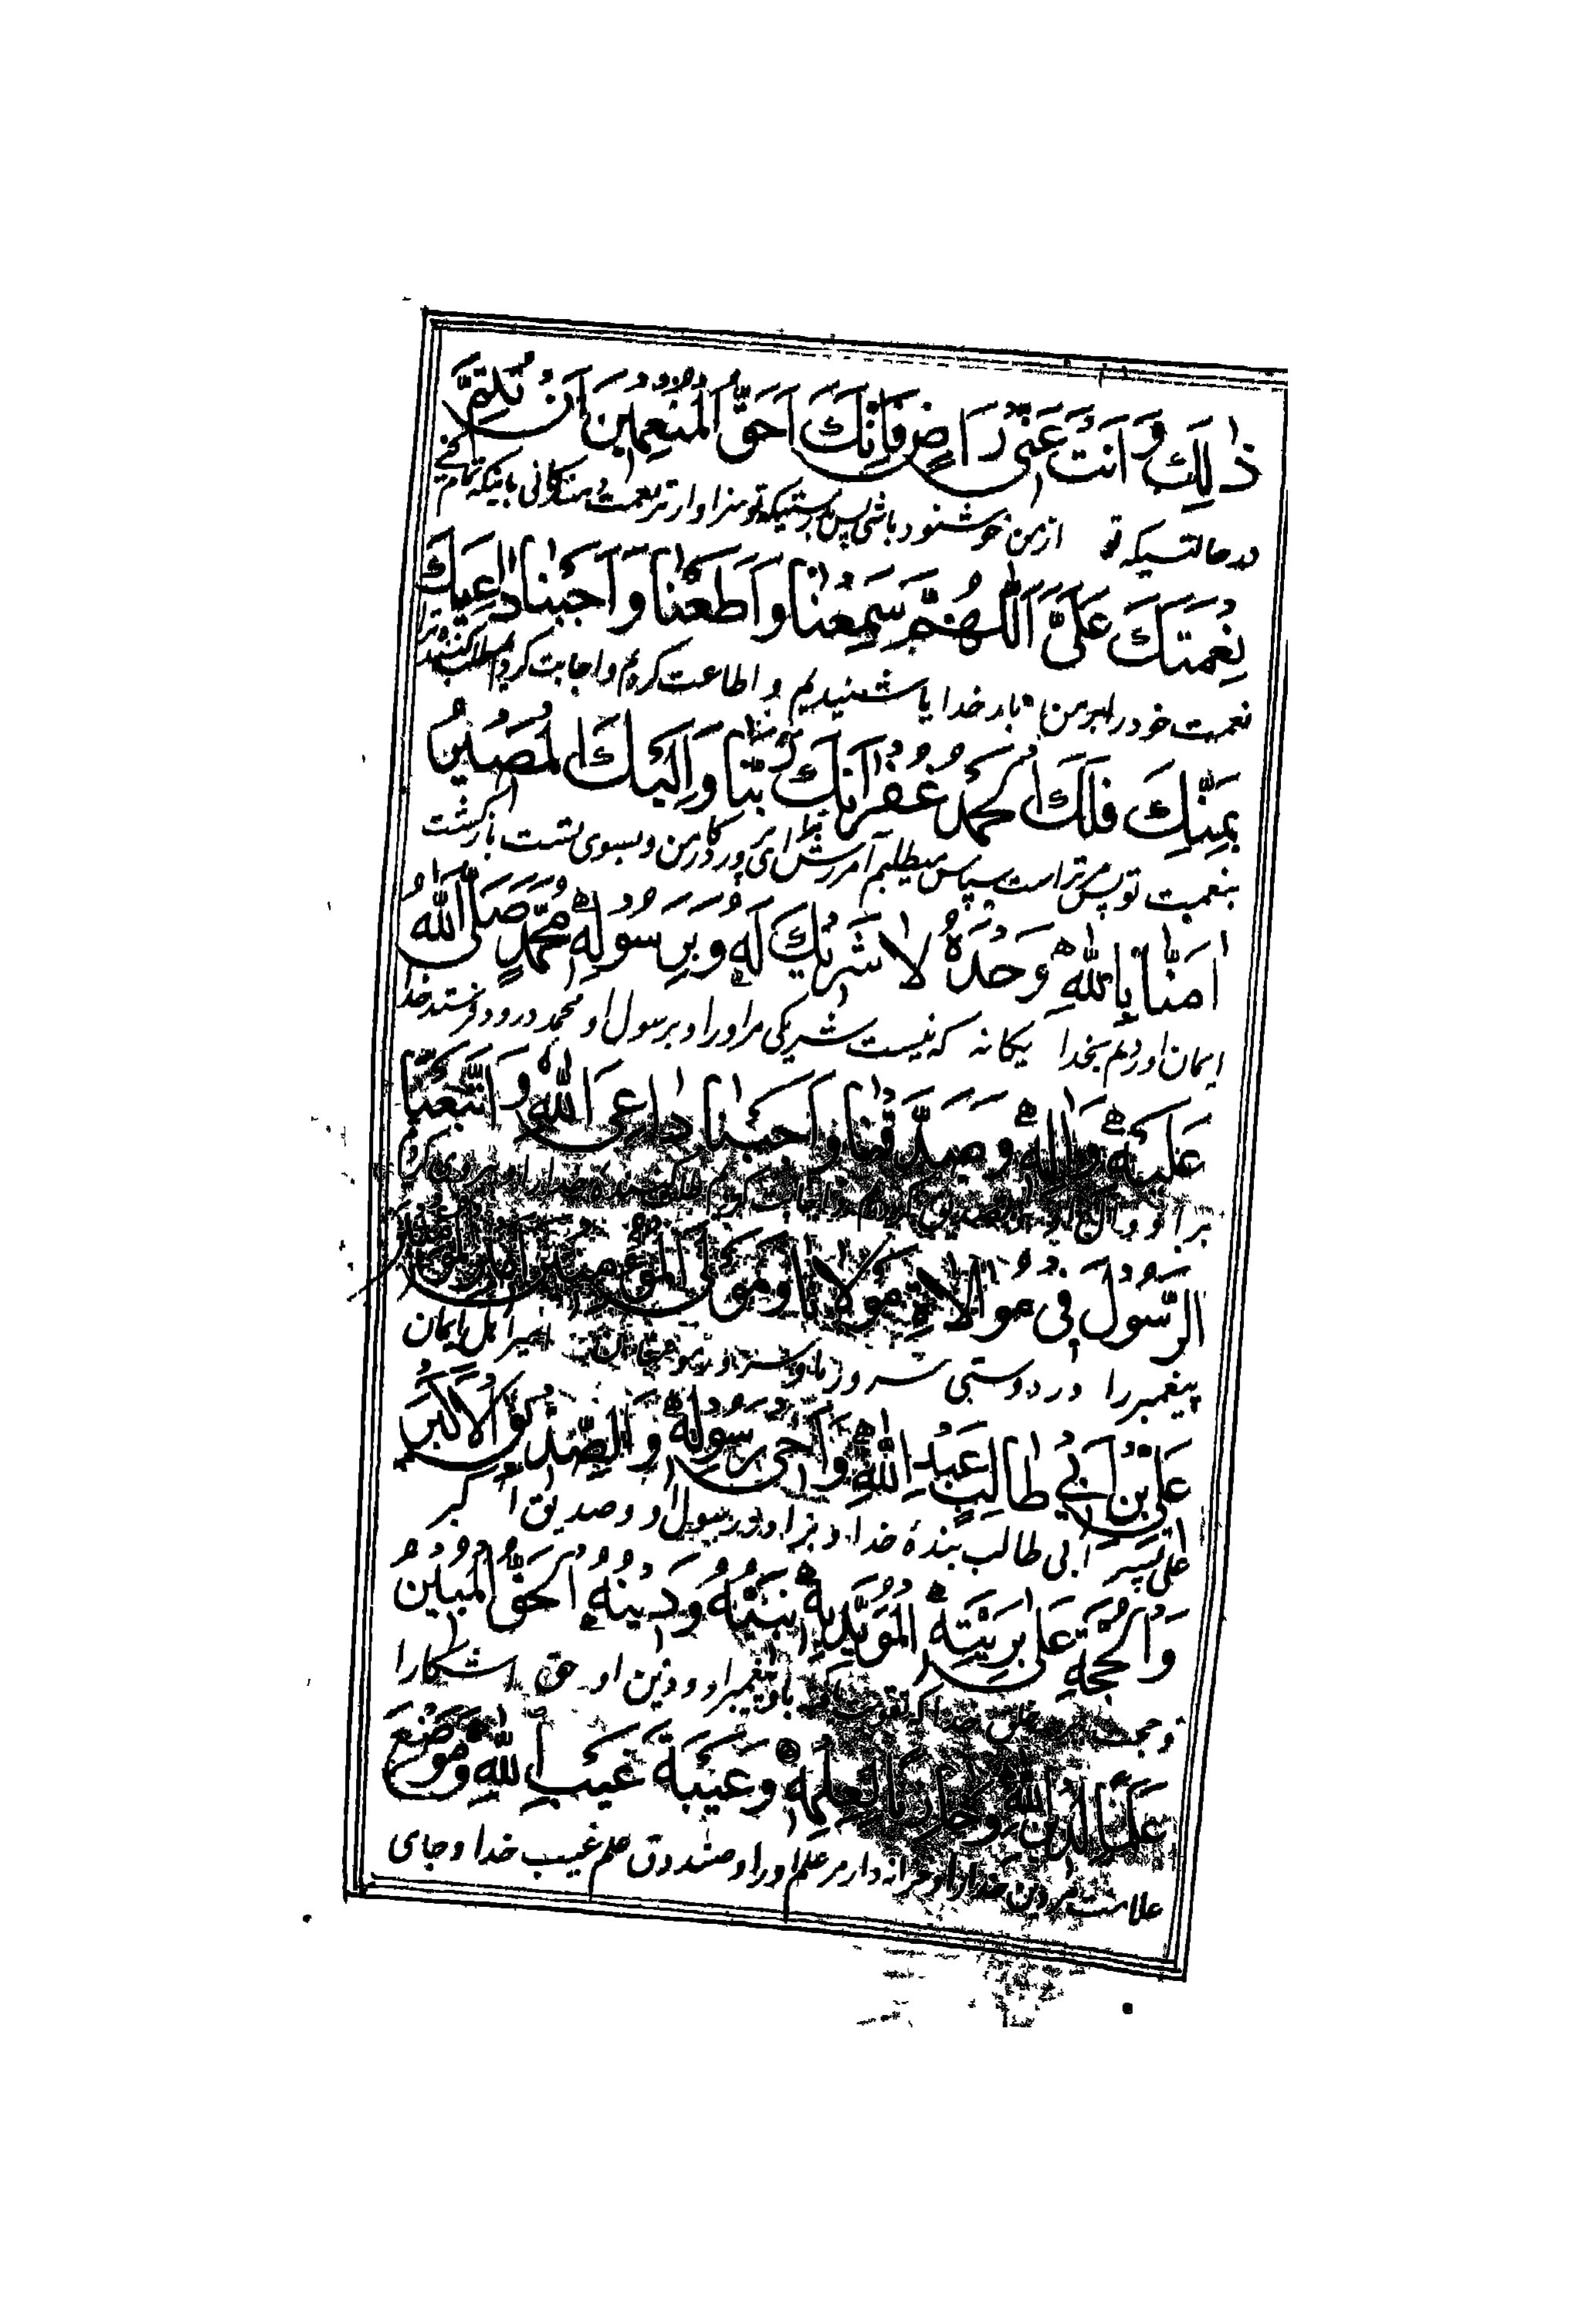 ذٰلِكَ وَاَنْتَ عَنّى رَاضٍ فَاِنَّكَ اَحَقُّ الْمُنْعِمينَ اَنْ تُتِمَّ
در حالتسیکه تو از من خوشنود باشی پس بدرستیکه تو سزاوارتر نعمت دهندکانی باینکه تمام کنی
نِعْمَتَكَ عَلَىَّ اَللّٰهُمَّ سَمِعْنٰا وَاَطَعْنٰا وَاَجَبْنٰا دٰاعِيَكَ
نعمت خود را بر من بار خدایا شنیدیم و اطاعت کردیم و اجابت کردیم طلب کننده ترا
بِمَنِّكَ فَلَكَ الْحَمْدُ غُفْرٰانَكَ رَبَّنٰا وَاِلَيْكَ الْمَصيرُ
بنعمت تو پس مر تراست سپاس میطلبم آمرزش ترا ای پروردکار من و بسوی تست بازکشت
اٰمَنّٰا بِاللّٰهِ وَحْدَهُ لٰا شَريكَ لَهُ وَبِرَسُولِهِ مُحَمَّدٍ صَلَّى اللّٰهُ
ایمان اوردیم بخدا یکانه که نیست شریکی مر اورا و برسول او محمد درود فرستد خدا
عَلَيْهِ وَاٰلِهِ وَصَدَّقْنٰا وَاَجَبْنٰا دٰاعِىَ اللّٰهِ وَاتَّبَعْنَا
بر او و بال او و تصدیق کردیم و اجابت کردیم طلب کننده خدا را و پیروی کردیم
الرَّسُولَ فى مُوٰالاةِ مَوْلٰانٰا وَمَوْلَى الْمُؤْمِنينَ اَميرِ الْمُؤْمِنينَ
پیغمبر را در دوستی سرور ما و سرور مومنان امیر اهل ایمان
عَلِىِّ بْنِ اَبي طٰالِبٍ عَبْدِ اللّٰهِ وَاَخى رَسُولِهِ وَالصِّدّيقِ الْاَكْبَرِ
علی پسر ابی طالب بندهٔ خدا و برادر رسول او و صدیق اکبر
وَالْحُجَّةِ عَلىٰ بَرِيَّتِهِ الْمُؤَيَّدِ بِهِ نَبِيَّهُ وَدينَهُ الْحَقَّ الْمُبينَ
و حجت بر خلق خدا که تقویت یافته باو پیغمبر او و دین او حق اشکارا
عَلَمًا لِدينِ اللّٰهِ وَخٰازِنًا لِعِلْمِهِ وَعَيْبَةَ غَيْبِ اللّٰهِ وَمَوْضِعَ
علامت مر دین خدا را و خزانه دار مر علم اورا و صندوق علم غیب خدا و جای